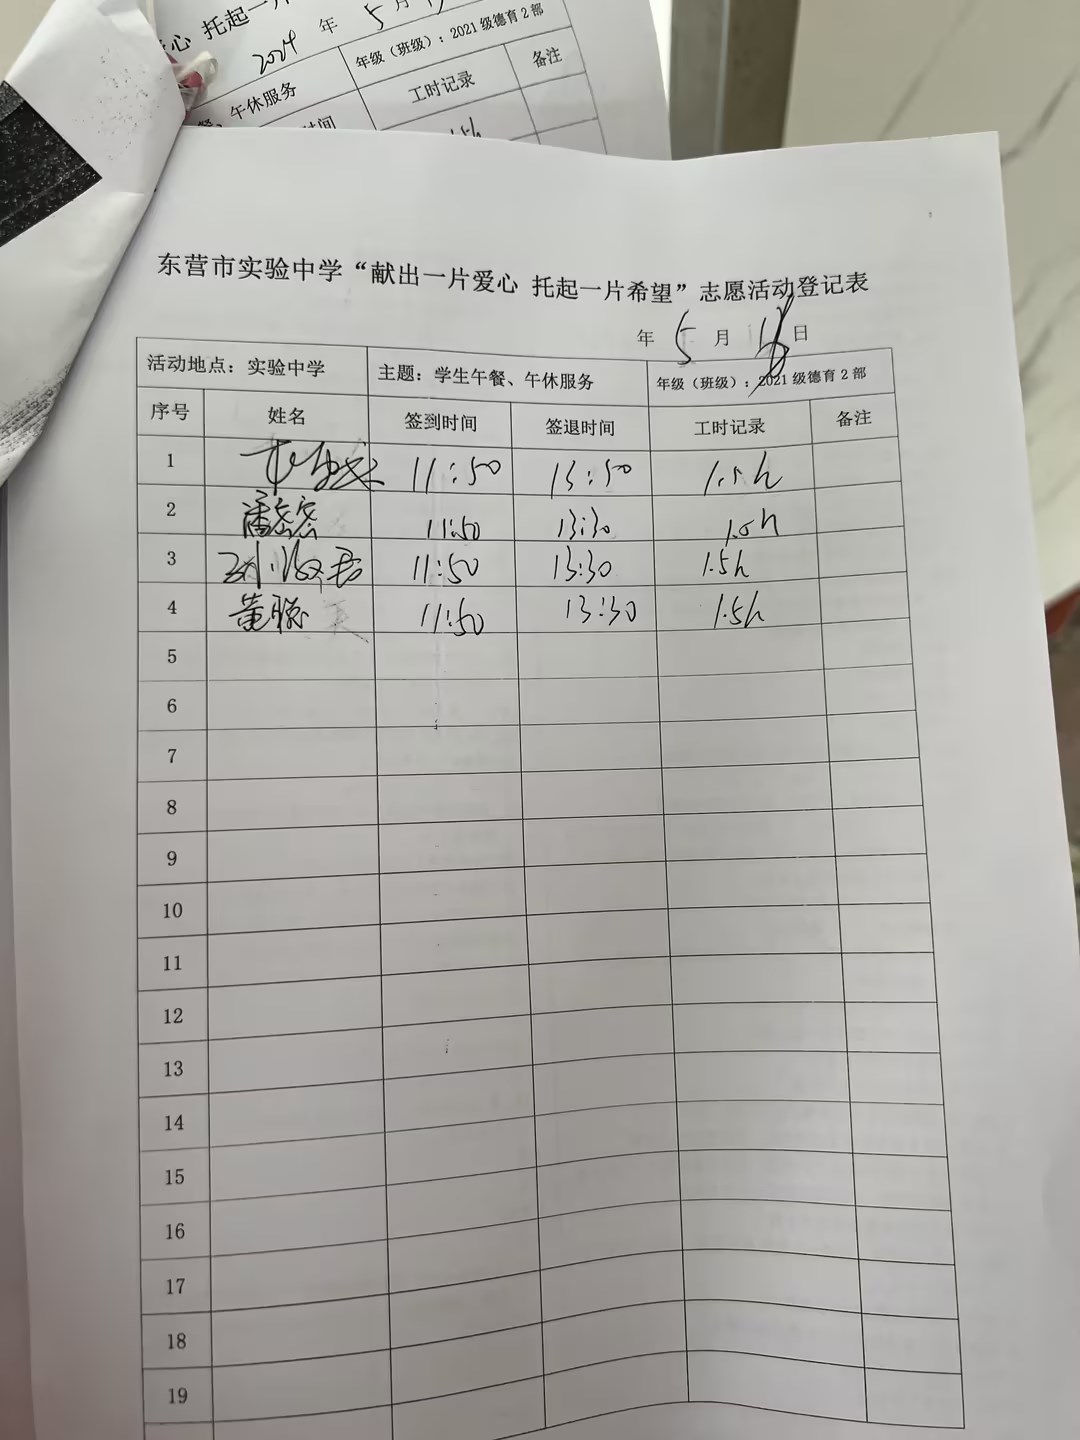 心 托起一片
2024 年 5 月
年级（班级）：2021级德育2部
餐、午休服务
工时记录
备注
时间
1.5h
东营市实验中学“献出一片爱心 托起一片希望”志愿活动登记表
年 5 月 18 日
活动地点：实验中学 主题：学生午餐、午休服务 年级（班级）：2021级德育2部
序号 姓名 签到时间 签退时间 工时记录 备注
1 11:50 13:50 1.5h
2 潘密密 11:50 13:30 1.5h
3 11:50 13:30 1.5h
4 董聪 11:50 13:30 1.5h
5
6
7
8
9
10
11
12
13
14
15
16
17
18
19